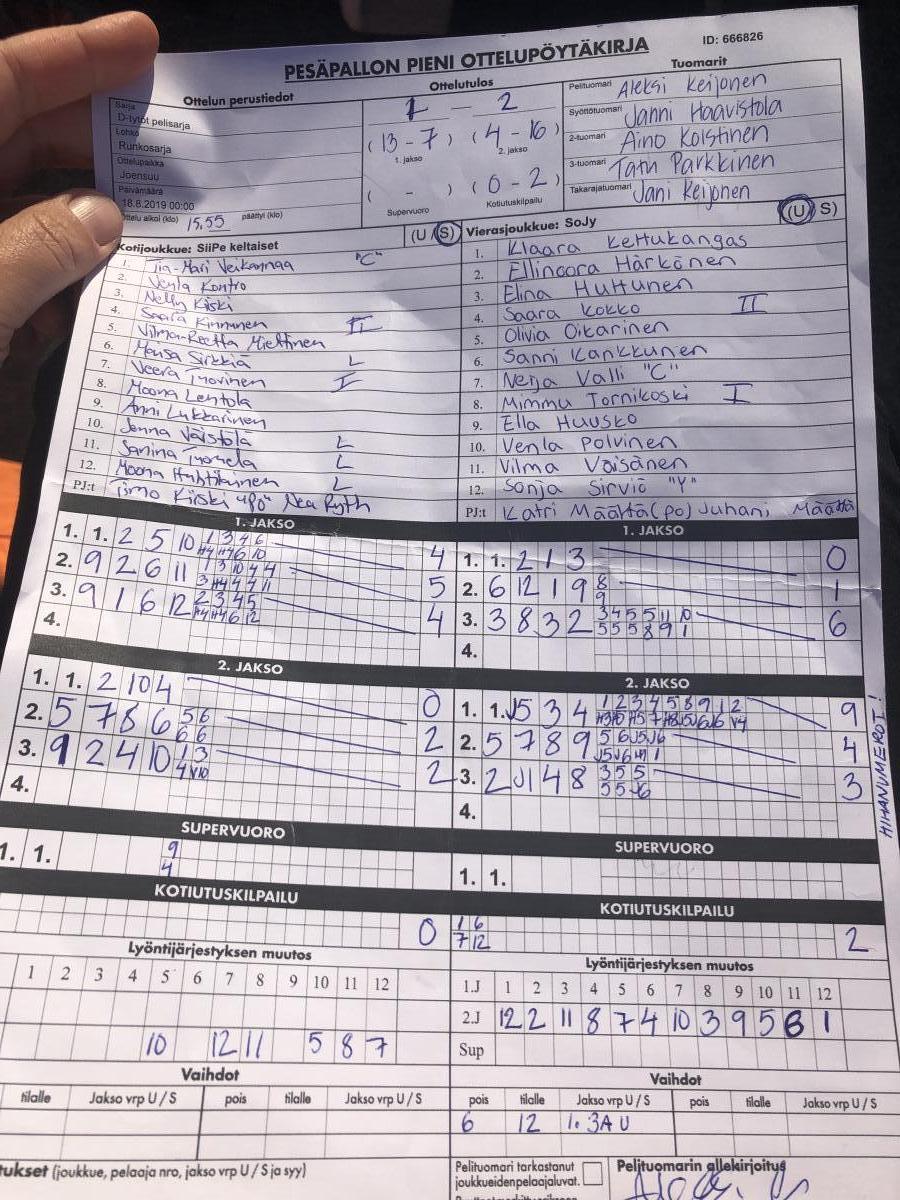 PESÄPALLON PIENI OTTELUPÖYTÄKIRJA
ID: 666826
Ottelun perustiedot
Sarja
D-tytöt pelisarja
Lohko
Runkosarja
Ottelupaikka
Joensuu
Päivämäärä
18.8.2019 00:00
Ottelu alkoi (klo) 15.55 päättyi (klo)
Ottelutulos
1 - 2
(13-7) (4-16)
1. jakso 2. jakso
( - ) (0-2)
Supervuoro Kotiutuskilpailu
Tuomarit
Pelituomari Aleksi Keijonen
Syöttötuomari Janni Haavistola
2-tuomari Aino Koistinen
3-tuomari Tatu Parkkinen
Takarajatuomari Jani Keijonen
Kotijoukkue: SiiPe keltaiset (U/S)
1. Tia-Mari "C"
2. Venla Kontro
3. Nelly Kiiski
4. Saara Kinnunen II
5. Vilma-Reetta Miettinen
6. Mensa Sirkkiä L
7. Veera Tuovinen I
8. Moona Lehtola
9. Anni Lukkarinen
10. Jenna Väistölä L
11. Janina L
12. Moona Huhtilainen L
PJ:t Timo Kiiski "Po" Nea
Vierasjoukkue: SoJy (U/S)
1. Klaara Kettukangas
2. Ellinoora Härkönen
3. Elina Huttunen
4. Saara Kokko II
5. Olivia Oikarinen
6. Sanni Kankkunen
7. Nerja Valli "C"
8. Mimmu Tornikoski I
9. Ella Huusko
10. Venla Polvinen
11. Vilma Väisänen
12. Sonja Sirviö "Y"
PJ:t Katri Määttä (po) Juhani Määttä
1. JAKSO
1. 1. 2 5 10 1 3 4 6 4
2. 9 2 6 11 1 3 10 4 4 5
3. 9 1 6 12 2 3 4 5 4
4.
1. JAKSO
1. 1. 2 1 3 0
2. 6 12 1 9 8 1
9
3. 3 8 3 2 3 4 5 5 11 10 6
5 5 5 8 9 1
4.
2. JAKSO
1. 1. 2 10 4 0
2. 5 7 8 6 5 6 2
6 6
3. 9 2 4 10 1 3 2
4 V10
4.
2. JAKSO
1. 1. J5 3 4 1 2 3 4 5 8 9 1 2 9
2. 5 7 8 9 5 6 J5 J6 4
3. 2 J1 4 8 3 5 5 3
5 5 J6
4.
HIHANUMEROT!
SUPERVUORO
1. 1. 9
4
SUPERVUORO
1. 1.
KOTIUTUSKILPAILU
0
KOTIUTUSKILPAILU
1 6 2
7 12
Lyöntijärjestyksen muutos
1 2 3 4 5 6 7 8 9 10 11 12
10 12 11 5 8 7
Lyöntijärjestyksen muutos
1.J 1 2 3 4 5 6 7 8 9 10 11 12
2.J 12 2 11 8 7 4 10 3 9 5 6 1
Sup
Vaihdot
tilalle Jakso vrp U / S pois tilalle Jakso vrp U / S
Vaihdot
pois tilalle Jakso vrp U / S pois tilalle Jakso vrp U / S
6 12 1. 3A U
tukset (joukkue, pelaaja nro, jakso vrp U / S ja syy)
Pelituomari tarkastanut
joukkueidenpelaajaluvat.
Pelituomarin allekirjoitus